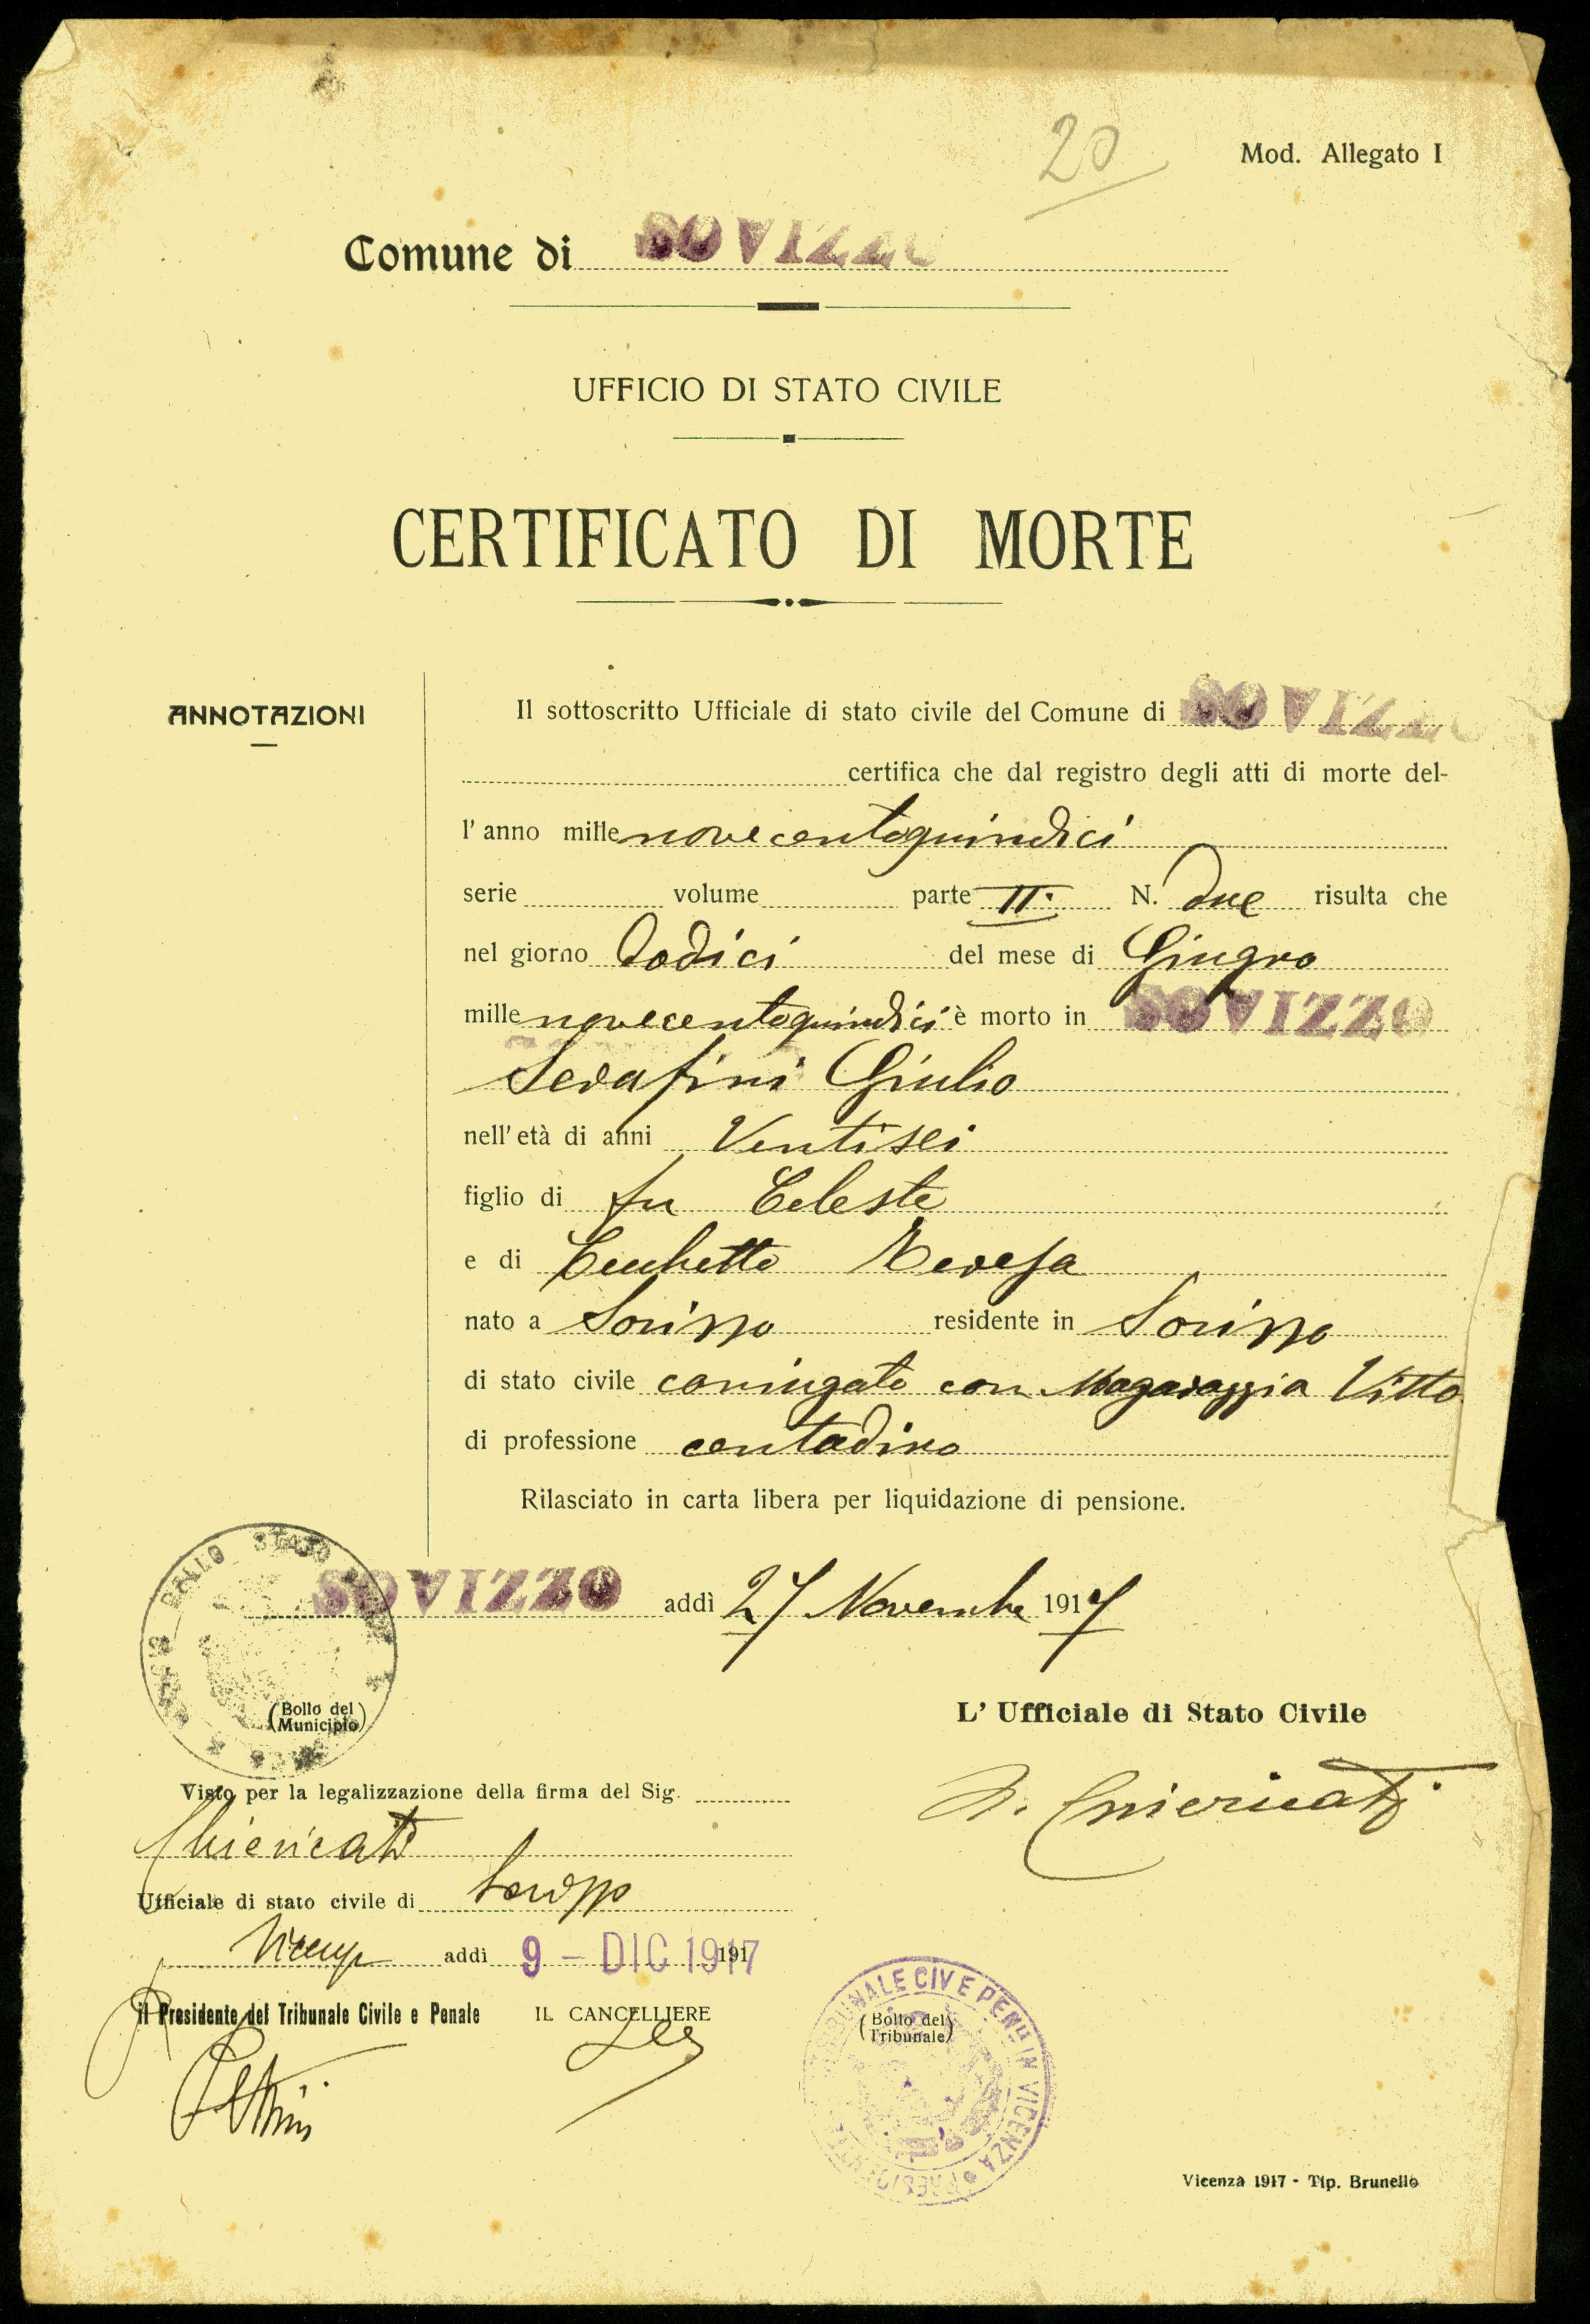 20
Mod. Allegato I
Comune di SOVIZZO
UFFICIO DI STATO CIVILE
CERTIFICATO DI MORTE
ANNOTAZIONI
Il sottoscritto Ufficiale di stato civile del Comune di SOVIZZO
certifica che dal registro degli atti di morte del-
l'anno mille novecentoquindici
serie volume parte II. N. due risulta che
nel giorno dodici del mese di Giugno
mille novecentoquindici è morto in SOVIZZO
Serafini Giulio
nell'età di anni Ventisei
figlio di fu Celeste
e di Cecchetto Teresa
nato a Sovizzo residente in Sovizzo
di stato civile coniugato con Magaraggia Vitto
di professione contadino
Rilasciato in carta libera per liquidazione di pensione.
SOVIZZO addì 27 Novembre 1917
(Bollo del Municipio)
L' Ufficiale di Stato Civile
Chiericati
Visto per la legalizzazione della firma del Sig.
Chiericati
Ufficiale di stato civile di Sovizzo
Vicenza addì 9 - DIC 1917 191
il Presidente del Tribunale Civile e Penale IL CANCELLIERE
(Bollo del Tribunale)
TRIBUNALE CIV E PEN IN VICENZA
Vicenza 1917 - Tip. Brunello